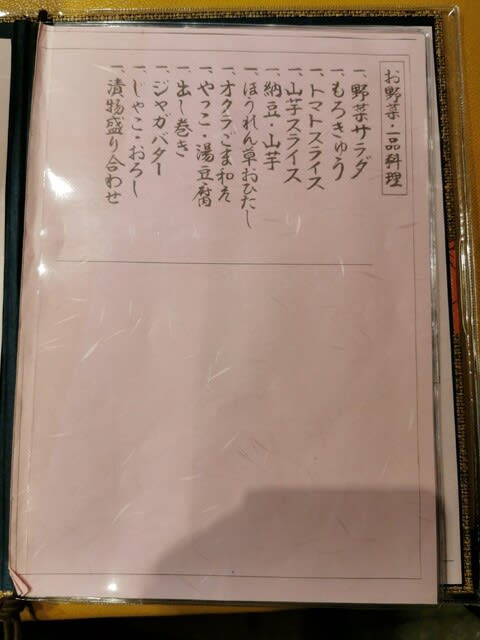 お野菜・一品料理
一、野菜サラダ
一、もろきゅう
一、トマトスライス
一、山芋スライス
一、納豆・山芋
一、ほうれん草おひたし
一、オクラごま和え
一、やっこ・湯豆腐
一、出し巻き
一、ジャガバター
一、じゃこ・おろし
一、漬物盛り合わせ